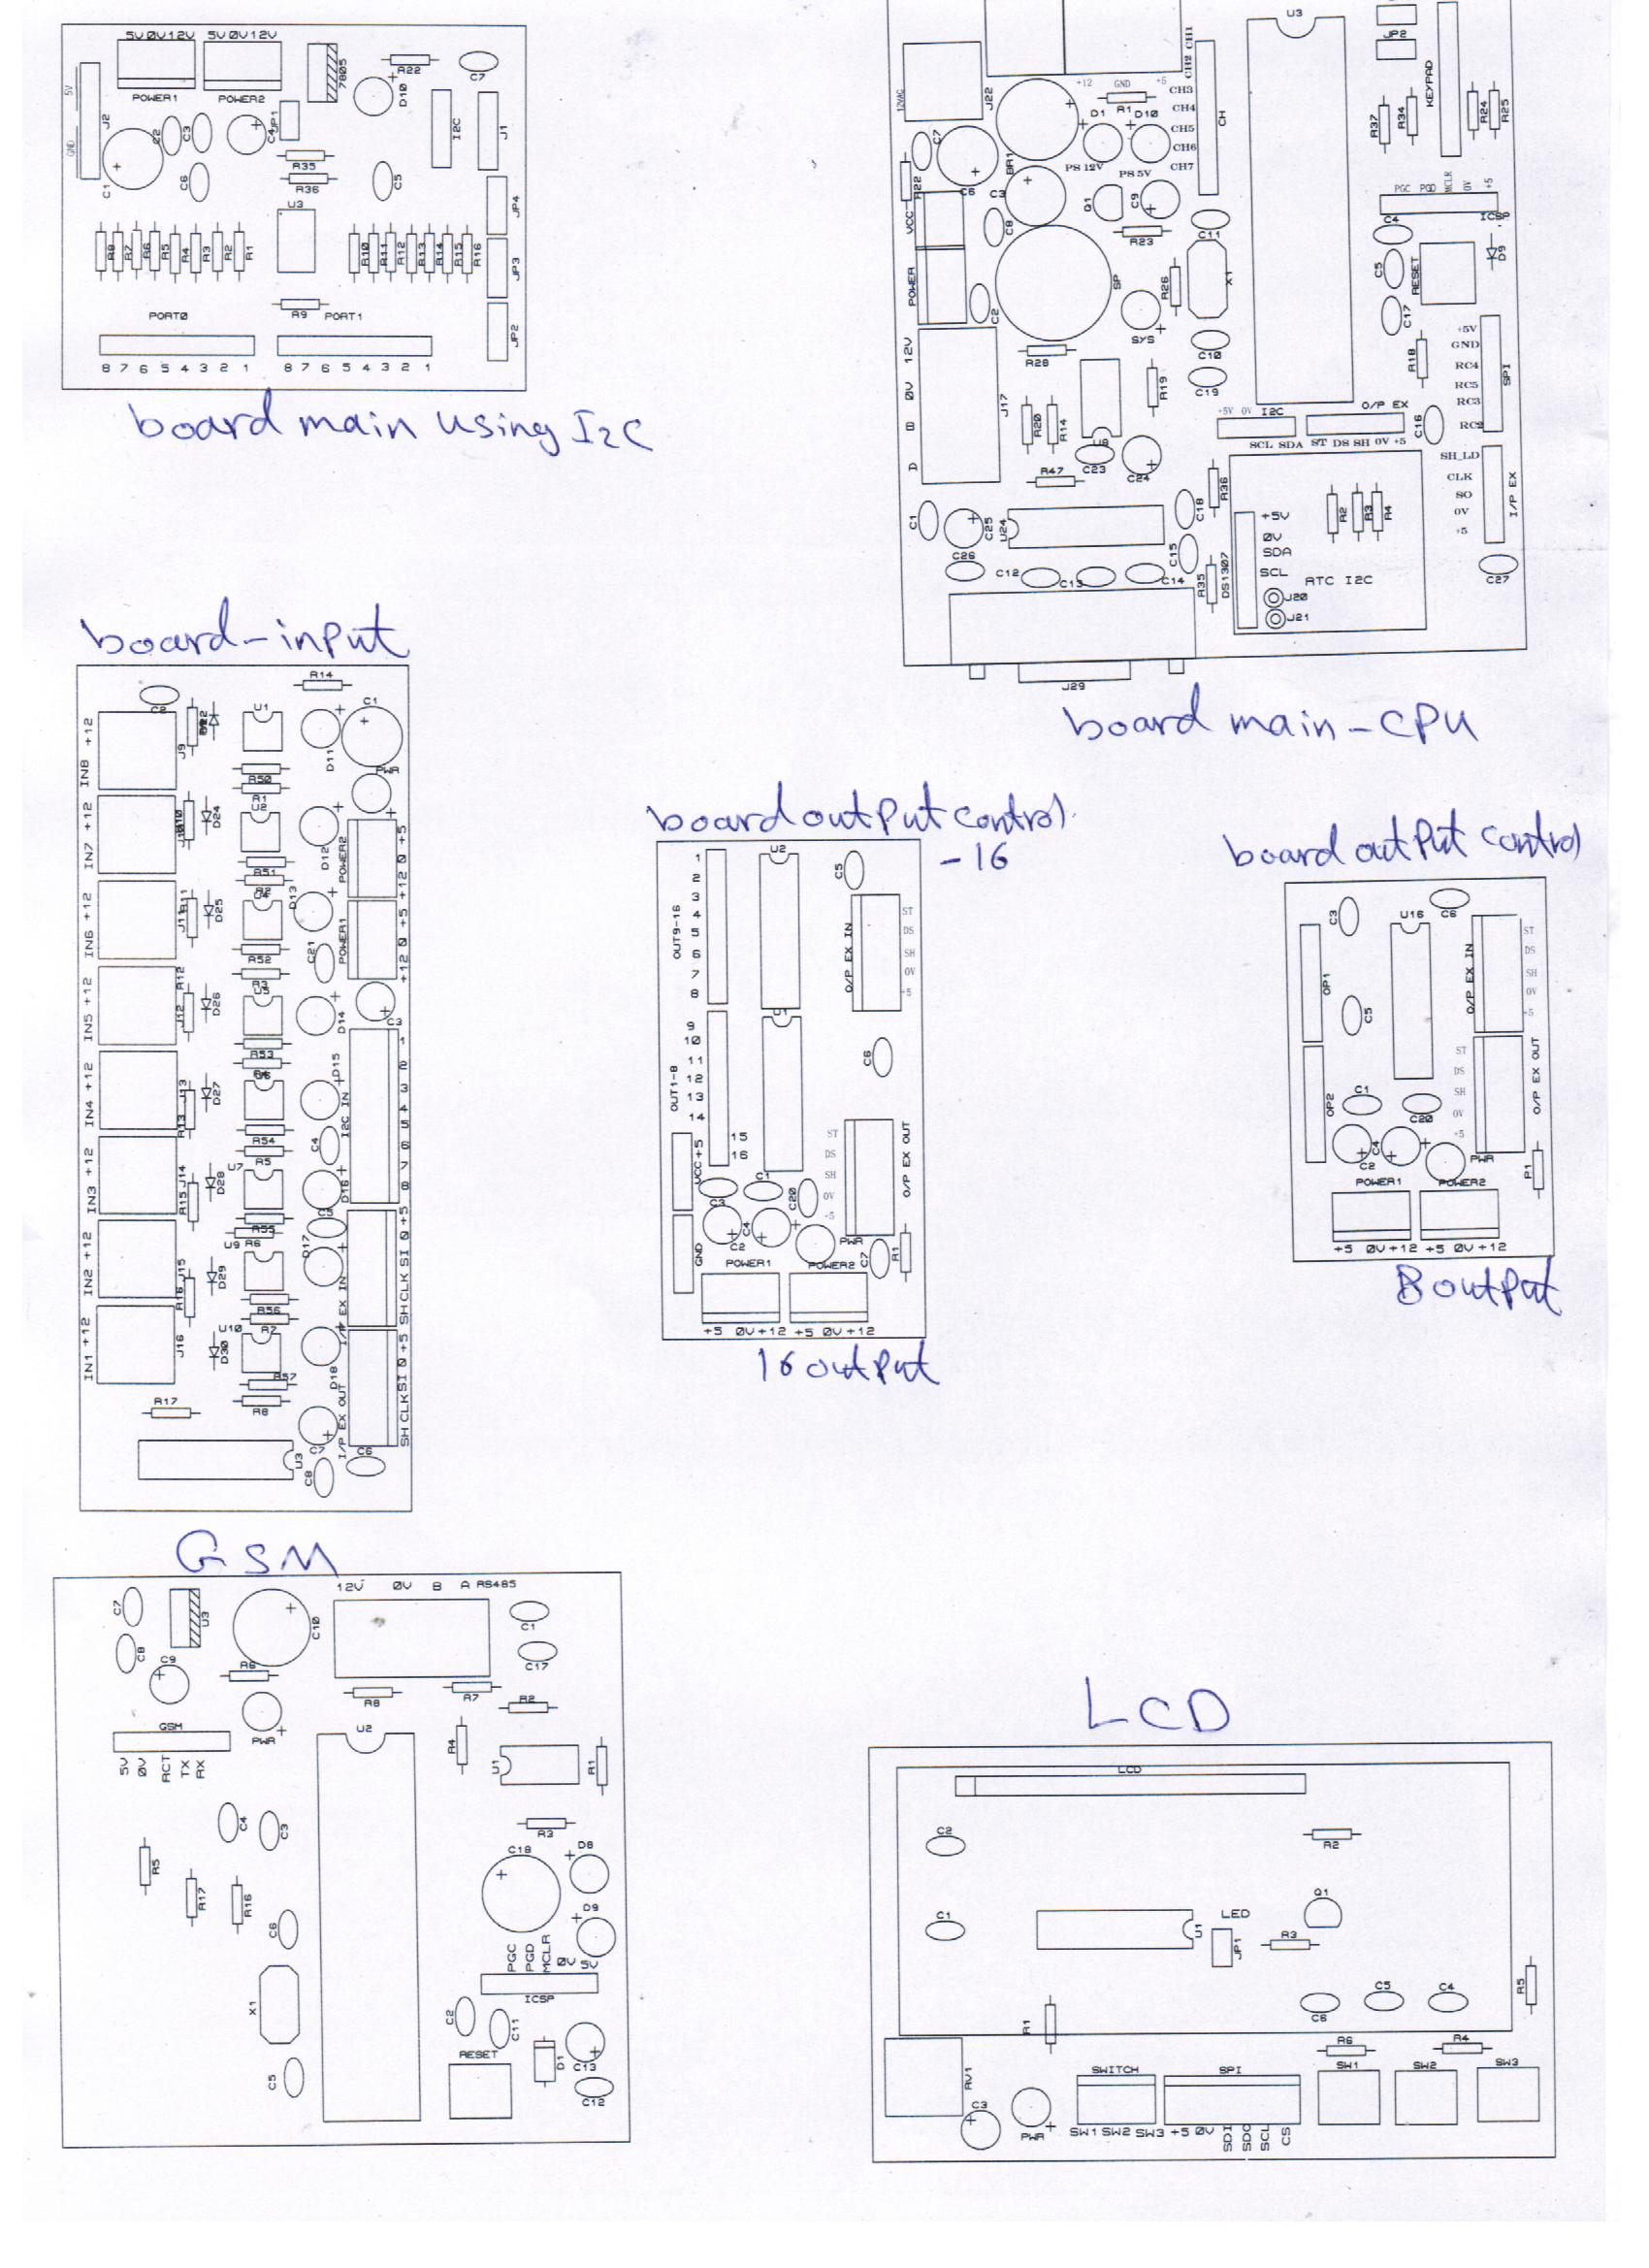 5V 0V 12V 5V 0V 12V
POWER1 POWER2
7805
R22
C7
D10
5V
GND
J2
C1
C2
C3
C4
JP1
I2C
J1
R35
R36
C6
C5
U3
JP4
JP3
JP2
R8 R7 R6 R5 R4 R3 R2 R1
R10 R11 R12 R13 R14 R15 R16
R9
PORT0 PORT1
8 7 6 5 4 3 2 1 8 7 6 5 4 3 2 1
board main using I2C
U3
JP2
KEYPAD
R37
R34
R24
R25
12VAC
J22
+12 GND +5
R1
D1 D10
BR1
PS 12V PS 5V
CH2 CH1
CH3
CH4
CH5
CH6
CH7
CH
C7
R22
C6
C3
C8
Q1
C9
R23
C11
VCC
POWER
SP
C2
R26
X1
SYS
C10
C19
PGC PGD MCLR 0V +5
ICSP
C4
C5
RESET
D9
C17
R18
+5V
GND
RC4
RC5
RC3
RC2
SPI
12V
0V
B
D
J17
R28
R20
R14
U6
R19
C23
C24
R47
+5V 0V I2C
SCL SDA
O/P EX
ST DS SH 0V +5
C16
SH_LD
CLK
SO
0V
+5
I/P EX
C1
C26
C25
U24
C18
R36
C15
C12 C13 C14
R35
DS1307
+5V
0V
SDA
SCL
RTC I2C
J20
J21
R2
R3
R4
C27
J29
board main-CPU
board-input
C2
R14
C1
U1
D11
PWR
IN8 +12
J9
R50
R1
U2
IN7 +12
D24
D12
R51
POWER2
+12 0 +5
IN6 +12
D25
D13
R52
C21
POWER1
+12 0 +5
IN5 +12
J12
R12
D26
D14
C3
R53
D15
IN4 +12
J13
R13
D27
I2C IN
1
2
3
4
5
6
7
8
R54
R5
C4
IN3 +12
J14
R15
D28
U7
D16
R55
R6
C5
U9
D17
IN2 +12
J15
R16
D29
I/P EX IN
SH CLK SI 0 +5
R56
R7
U10
IN1 +12
J16
D30
D18
R57
R8
R17
I/P EX OUT
SH CLK SI 0 +5
C7
C6
U3
C8
board output control
-16
U2
C5
1
2
3
4
5
6
7
8
OUT9-16
O/P EX IN
ST
DS
SH
0V
+5
9
10
11
12
13
14
15
16
OUT1-8
C6
VCC+5
GND
ST
DS
SH
0V
+5
O/P EX OUT
C3
C1
C20
C2
C4
PWR
C7
R1
POWER1 POWER2
+5 0V +12 +5 0V +12
16 output
board output control
C3
U16
C6
OP1
O/P EX IN
ST
DS
SH
0V
+5
C5
OP2
ST
DS
SH
0V
+5
O/P EX OUT
C1
C20
C2
C4
PWR
P1
POWER1 POWER2
+5 0V +12 +5 0V +12
8 output
GSM
12V 0V B A RS485
C7
U3
C10
C1
C8
C9
C17
R6
R8
R7
R2
GSM
PWR
U2
R4
U1
R1
5V
0V
RCT
TX
RX
C4
C3
R3
R5
R17
R16
C18
D8
D9
C6
PGC
PGD
MCLR
0V
5V
ICSP
X1
C2
C11
RESET
D1
C13
C12
C5
LCD
LCD
C2
R2
Q1
C1
U1
LED
JP1
R3
R5
C6
C5
C4
R1
R6
R4
RV1
SWITCH SPI
SW1 SW2 SW3
C3
PWR
SW1 SW2 SW3 +5 0V SDI SDO SCL CS